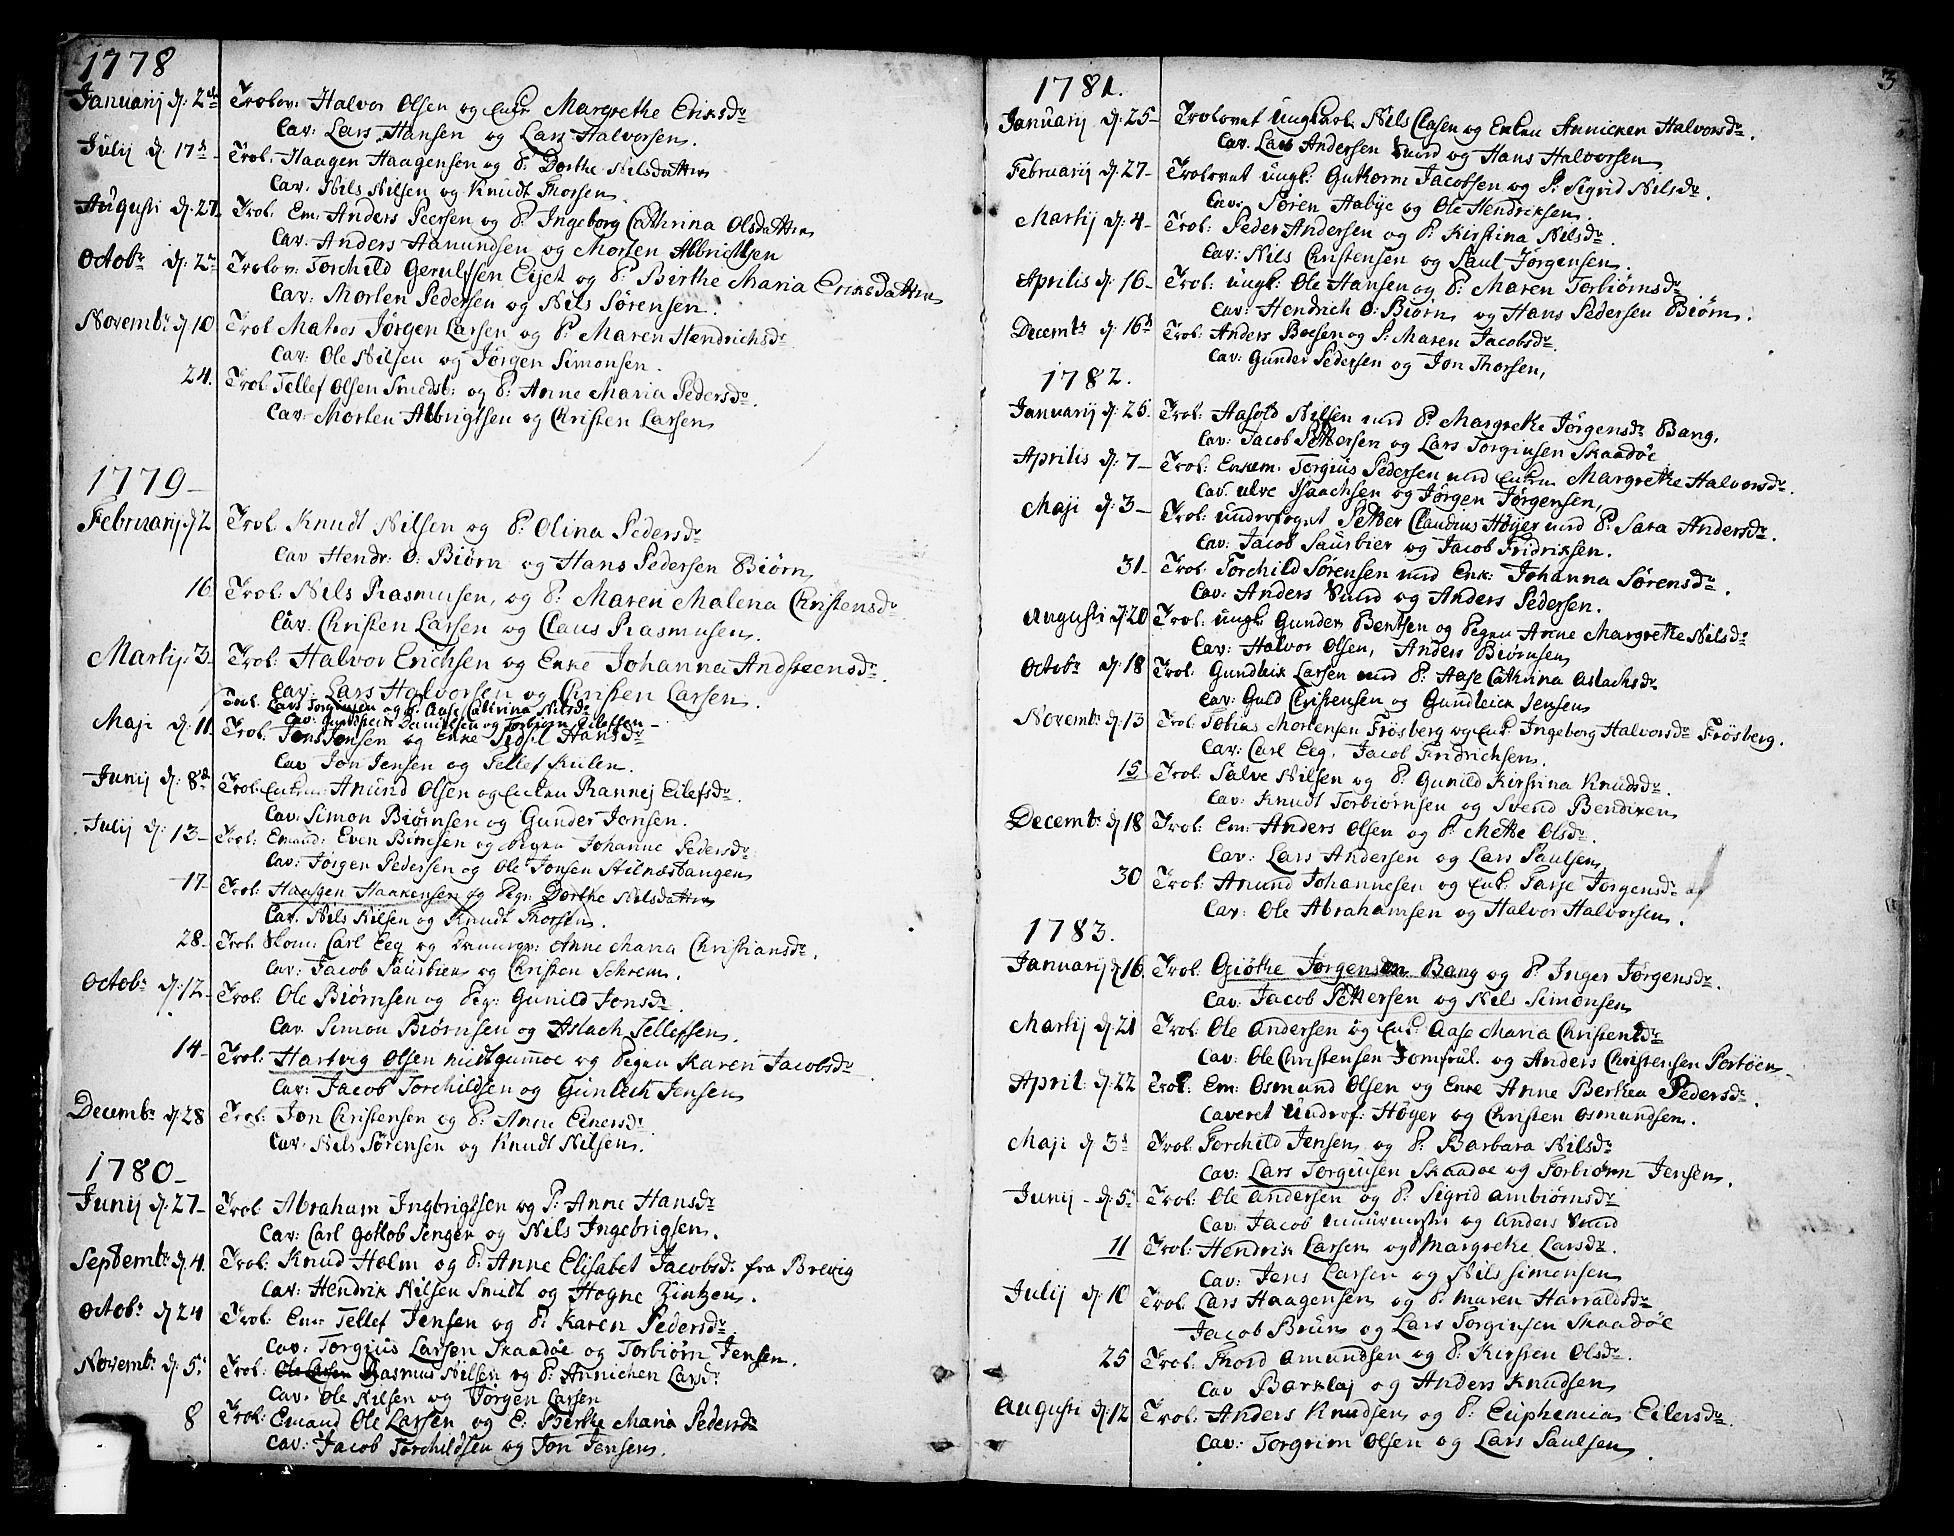 1778
Januarij d: 2den Trolov: Halvor Olsen og Enk Margrethe Eriksdr
Cav: Lars Hansen og Lars Halvorsen.
Julij d. 17d Trol: Haagen Haagensen og P: Dorthe Nilsdatter
Cav: Nils Nilsen og Knudt Thorsen.
Augusti d. 27. Trol: Em: Anders Peersen og P. Ingeborg Cathrina Olsdatter
Cav: Anders Aamundsen og Morten Albrictsen
Octobr d: 2n Trolov: Torchild Gerulfsen Eijet og P. Birthe Maria Eriksdatter
Cav: Morten Pedersen og Nils Sørensen.
Novembr d 10 Trol Matros Jørgen Larsen og P: Maren Hendrichsdr
Cav: Ole Nilsen og Jørgen Simonsen.
24. Trol: Tellef Olsen Smedsb: og P: Anne Maria Pedersdr.
Cav: Morten Albrigtsen og Christen Larsen
1779
Februarij d 2 Trol. Knudt Nilsen og P: Olina Pedersdr
Cav Hendr: O: Biørn og Hans Pedersen Biørn
16. Trol: Nils Rasmusen, og P. Maren Malena Christensdr
Cav. Christen Larsen og Claus Rasmusen.
Martij. 3. Trol: Halvor Erichsen og Enke Johanna Andreensdr.
Cav: Lars Halvorsen og Christen Larsen.
Trol. Lars Torginsen og P. Aase Cathrina Nilsdr
Cav: Gundleik Danielsen og Torbiørn Eilefsen
Maji d. 11. Trol. Jens Jensen og Enke Sidsil Hansdr
Cav Jon Jensen og Tellef Kulen.
Junij d: 8d Trol: Enkem: Anund Olsen og Enken Rannej Eilefsdr.
Cav: Simon Biørnsen og Gunder Jonsen.
Julij d: 13 Trol: Emand: Even Børresen og Pigen Johanne Pedersdr
Cav: Jørgen Pedersen og Ole Jonsen Stilnæstangen
17 Trol: Haagen Haakensen og Pigr: Dorthe Nilsdatter
Cav. Nils Nilsen og Knudt Thorsen.
28 Trol: Skom: Carl Eeg og Anne Maria Christiansdr.
Cav: Jacob Saursbier og Christen Schrem.
Octobr d: 12 Trol: Ole Biørnsen og Pig: Gunild Jonsdr.
Cav. Simon Biørnsen og Aslach Tellefsen.
14 Trol: Hartvig Olsen Midtgummoe og Pigen Karen Jacobsdr
Cav: Jacob Torchildsen og Gunleich Jensen
Decembr d 28 Trol: Jon Christensen og P: Anne Einersdr.
Cav. Nils Sørensen og Knudt Nilsen.
1780
Junij d: 27 Trol Abraham Ingbrigtsen og P: Anne Hansdr
Cav: Carl Gotlob Senger og Nils Ingebrigsen.
Septembr d. 4. Trol: Knud Holm og P: Anne Elisabet Jacobsdr fra Brevig
Cav: Hendrik Nilsen Smidt og Hogne Zintzen.
Octobr d 24 Trol: Em Tellef Jensen og P: Karen Pedersdr
Cav: Torgius Larsen Skaadøe og Torbiørn Jensen.
Novembr d: 5: Trol: Ole Larsen Rasmus Nilsen og P: Annichen Larsdr
Cav: Ole Nilsen og Jørgen Larsen
8 Trol: Emand Ole Larsen og E: Berthe Maria Pedersdr
Cav: Jacob Torchildsen og Jon Jensen.
3
1781.
Januarij d: 25 Trolovet Ungkarl Nils Clasen og Enken Annicken Halvorsdr.
Cav. Lars Andersen Svind og Hans Halvorsen
Februarij d: 27 Trolovet Ungk: Guthorm Jacobsen og P: Sigrid Nilsdr.
Cav: Søren Habije og Ole Hendriksen.
Martij d: 4 Trol: Peder Andersen og P: Kirstina Nilsdr.
Cav: Nils Christensen og Paul Jørgensen.
Aprilis d: 16 Trol: Ungk: Ole Hansen og P: Maren Torbiørnsdr
Cav: Hendrich O: Biørn og Hans Pedersen Biørn.
Decembr d 16d Trol: Anders Boesen og P: Maren Jacobsdr.
Cav: Gunder Pedersen og Jon Thorsen,
1782.
Januarij d: 25. Trol: Aasold Nilsen med P: Margrethe Jørgensdr Bang.
Cav: Jacob Pettersen og Lars Torginsen Skaadøe
Aprilis d: 7 Trol: Enkem: Torgius Pedersen med Enken Margrethe Halvorsdr.
Cav. Ulve Isaachsen og Jørgen Jørgensen,
Maji d: 3 Trol: Underfoget Petter Claudius Høyer med P: Sara Andersdr.
Cav: Jacob Saursbier og Jacob Fridriksen.
31 Trol: Torchild Sørensen med Enk: Johanna Sørensdr.
Cav: Anders Svind og Anders Pedersen.
Augusti d 20 Trol: Ungk: Gunder Bentsen og Pigen Anne Margrethe Nilsdr
Cav: Halvor Olsen, Anders Biørnsen
Octobr d: 18 Trol: Gundleik Larsen med P: Aase Cathrina Aslachsdr
Cav: Guld Christensen og Gundleick Jensen
Novembr d: 13 Trol: Tobias Mortensen Frøsberg og Enk: Ingeborg Halvorsdr Frøsberg.
Cav: Carl Eeg, Jacob Fridrichsen.
15 Trol: Salve Nilsen og P: Gunild Kirstina Knudsdr.
Cav: Knudt Torbiørnsen og Svend Bendixen
Decembr d 18 Trol: Em: Anders Olsen og P: Mette Olsdr.
Cav: Lars Andersen og Lars Paulsen
30 Trol: Anund Johannesen og Enk: Tarje Jørgensdr
Cav: Ole Abrahamsen og Halvor Halvorsen.
1783.
Januarij d 16. Trol: Giøthe Jørgensen Bang og P: Inger Jørgensdr.
Cav: Jacob Pettersen og Nils Simonsen
Martij d: 21 Trol: Ole Andersen og Enk: Aase Maria Christensdr
Cav: Ole Christensen Jomfrul. og Anders Christensen Portøen
April: d: 22 Trol: Em: Osmund Olsen og Enke Anne Berthea Pedersdr.
Caveret Underf: Høyer og Christen Osmundsen.
Maji d 3d Trol: Torchild Jensen og P: Barbara Nilsdr
Cav: Lars Torginsen Skaadøe og Torbiørn Jensen.
Junij d: 5: Trol: Ole Andersen og P: Sigrid Ambiørnsdr
Cav: Jacob Muurmester og Anders Svind
11 Trol: Hendrik Larsen og P Margrethe Larsdr.
Cav: Jens Larsen og Nils Simonsen
Julij d: 10 Trol: Lars Haagensen og P: Maren Harraldsdr
Jacob Bruun og Lars Torginsen Skaadøe
25 Trol: Thord Amundsen og P: Kirsten Olsdr.
Cav Barklaj og Anders Knudsen
Augusti d: 12 Trol: Anders Knudsen og P: Euphemia Eilersdr.
Cav: Torgrim Olsen og Lars Paulsen.